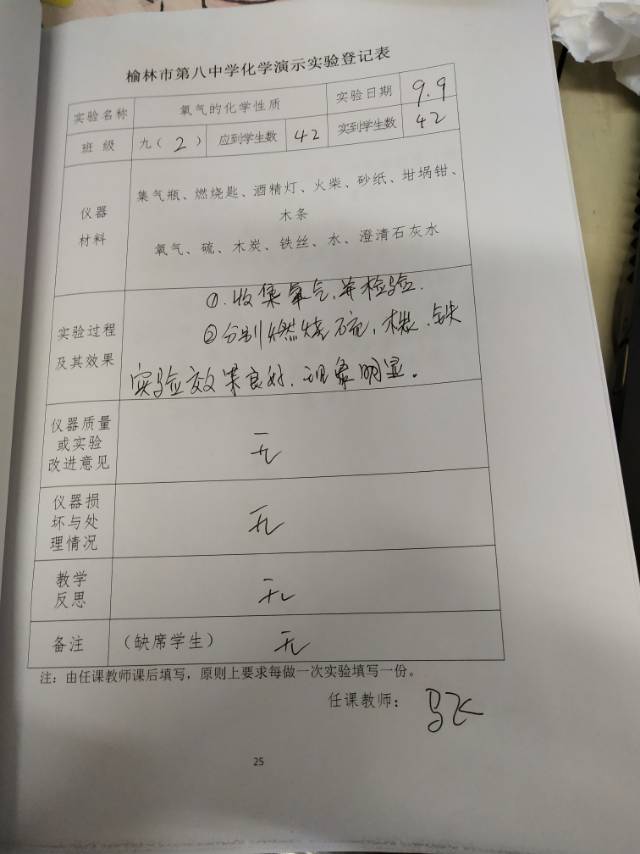 榆林市第八中学化学演示实验登记表
实验名称 氧气的化学性质 实验日期 9.9
班 级 九（2） 应到学生数 42 实到学生数 42
仪器
材料
集气瓶、燃烧匙、酒精灯、火柴、砂纸、坩埚钳、
木条
氧气、硫、木炭、铁丝、水、澄清石灰水
实验过程
及其效果
①.收集氧气,并检验.
②分别燃烧硫,木炭.铁
实验效果良好.现象明显.
仪器质量
或实验
改进意见
无
仪器损
坏与处
理情况
无
教学
反思
无
备注 （缺席学生） 无
注：由任课教师课后填写，原则上要求每做一次实验填写一份。
任课教师：
25